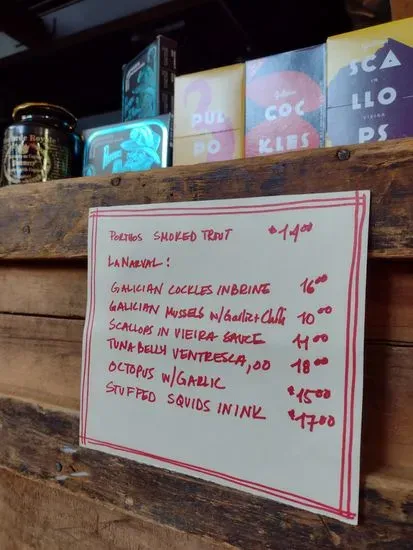 PULPO
COCKLES
SCA
IN
LLO
VIEIRA
PS
PORTHOS SMOKED TROUT $14.00
LA NARVAL:
GALICIAN COCKLES IN BRINE 16.00
GALICIAN MUSSELS W/Garlic+Chilli 10.00
SCALLOPS IN VIEIRA SAUCE 11.00
TUNA BELLY VENTRESCA,00 18.00
OCTOPUS W/GARLIC $15.00
STUFFED SQUIDS IN INK $17.00